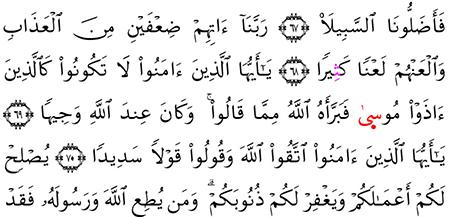 فَأَضَلُّونَا السَّبِيلَا۠ ﴿٦٧﴾ رَبَّنَآ ءَاتِهِمْ ضِعْفَيْنِ مِنَ الْعَذَابِ
وَالْعَنْهُمْ لَعْنًا كَثِيرًا ﴿٦٨﴾ يَٰٓأَيُّهَا الَّذِينَ ءَامَنُوا۟ لَا تَكُونُوا۟ كَالَّذِينَ
ءَاذَوْا۟ مُوسَىٰ فَبَرَّأَهُ اللَّهُ مِمَّا قَالُوا۟ ۚ وَكَانَ عِندَ اللَّهِ وَجِيهًا ﴿٦٩﴾
يَٰٓأَيُّهَا الَّذِينَ ءَامَنُوا۟ اتَّقُوا۟ اللَّهَ وَقُولُوا۟ قَوْلًا سَدِيدًا ﴿٧٠﴾ يُصْلِحْ
لَكُمْ أَعْمَٰلَكُمْ وَيَغْفِرْ لَكُمْ ذُنُوبَكُمْ ۗ وَمَن يُطِعِ اللَّهَ وَرَسُولَهُۥ فَقَدْ